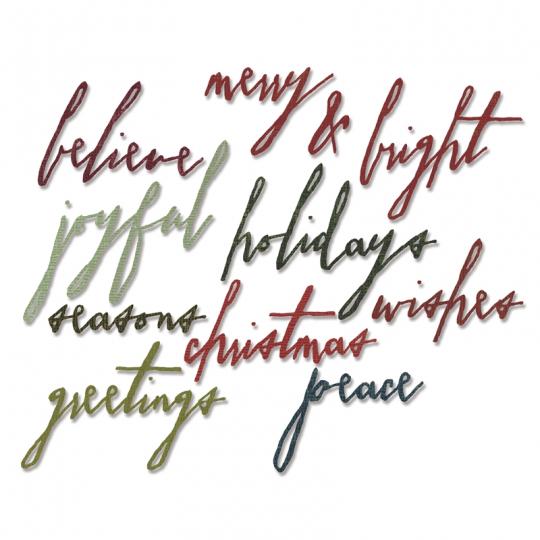 merry
& bright
believe
joyful
holidays
seasons
wishes
christmas
greetings
peace